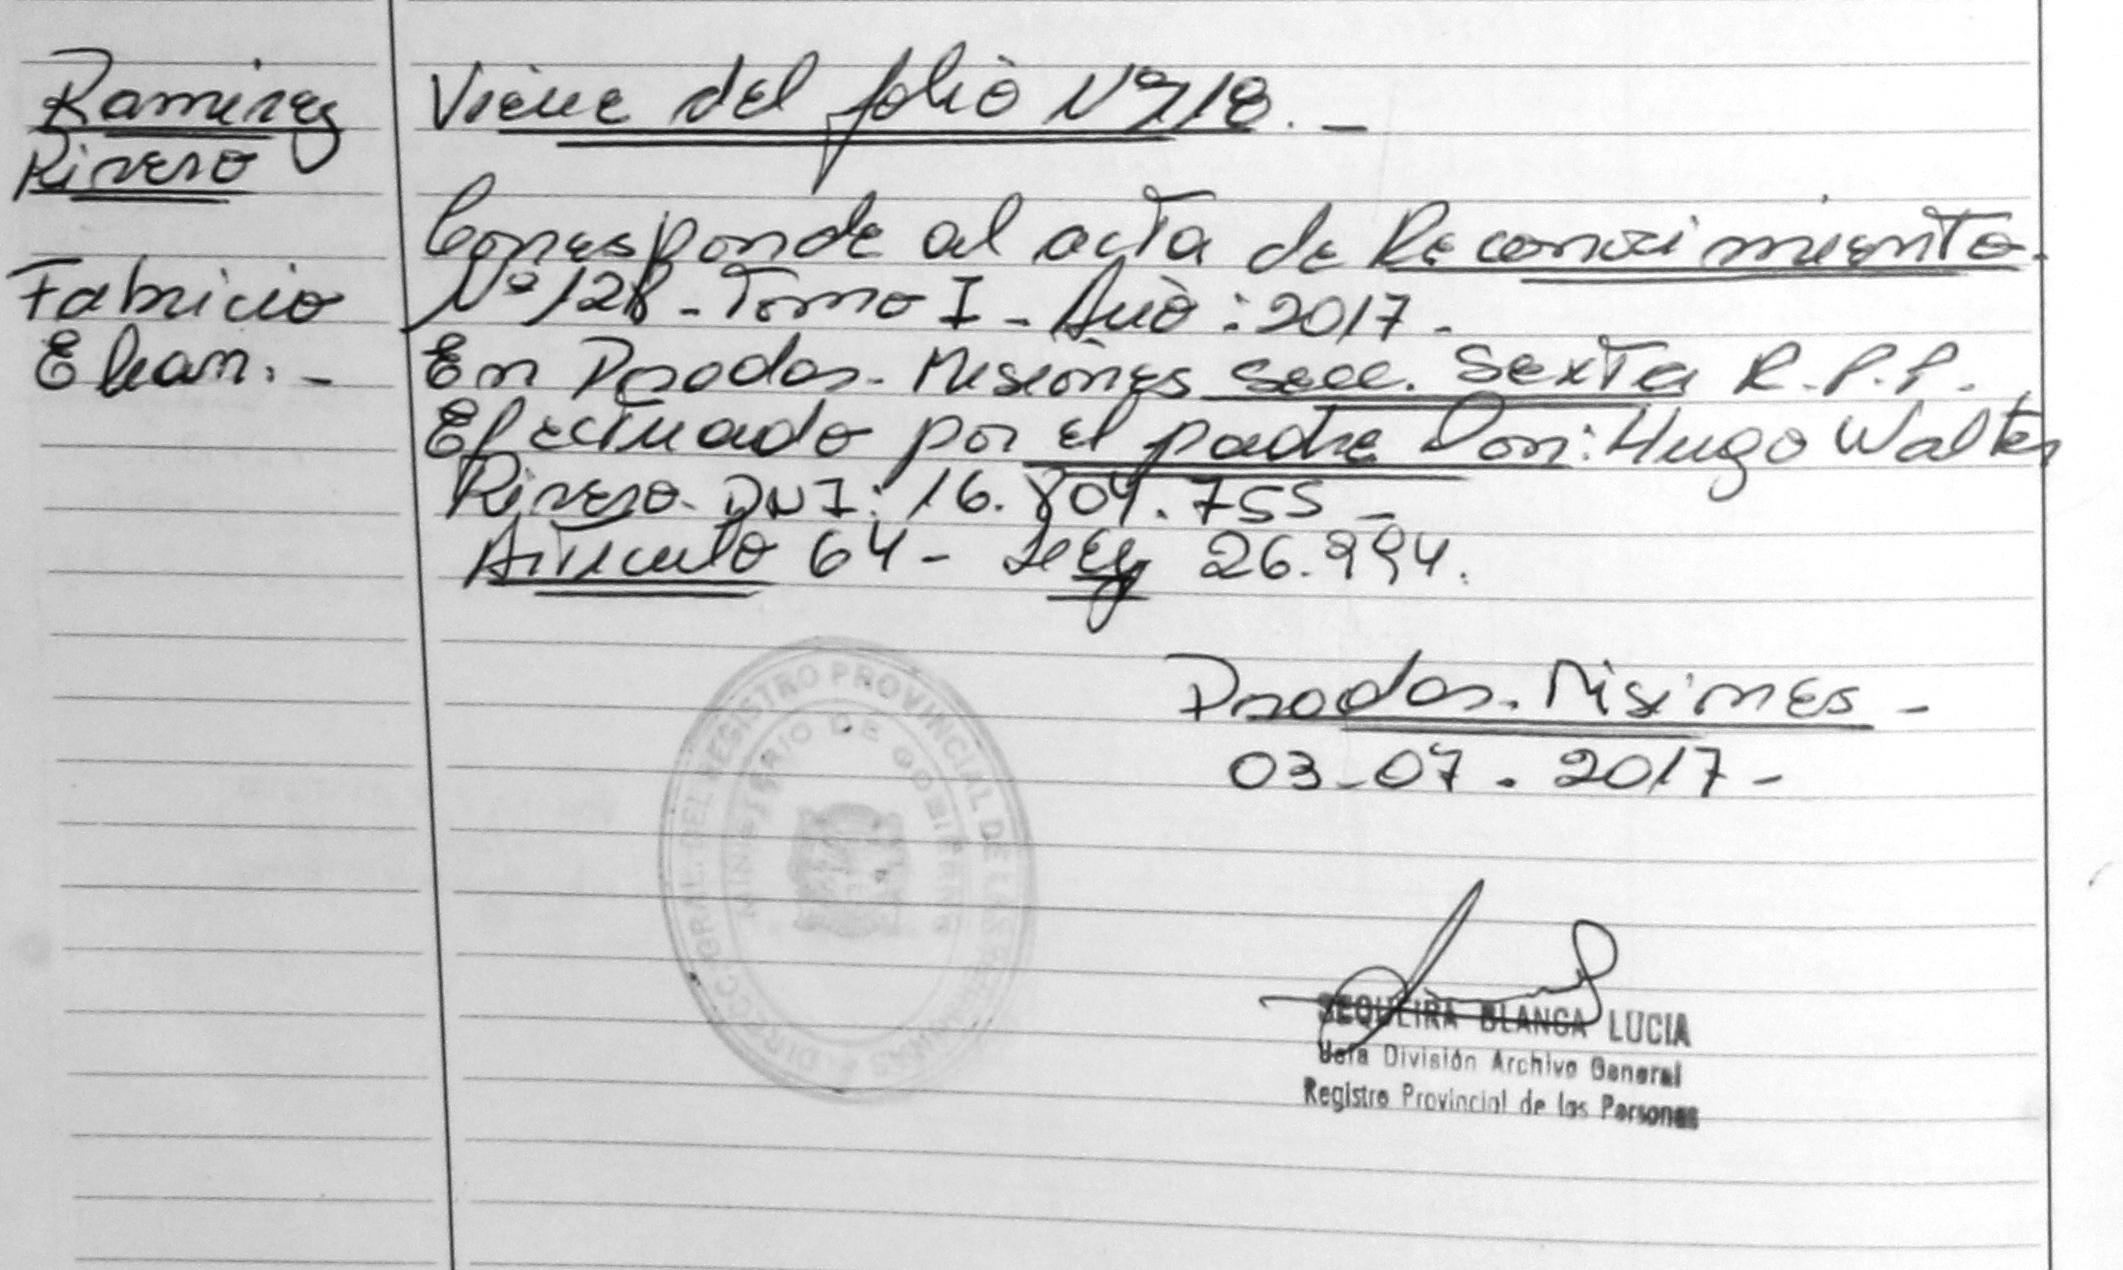 Ramirez
Rivero
Fabricio
Elian. -
Viene del folio Nº 718. -
Corresponde al acta de Reconocimiento.
Nº 128 - Tomo I - Año: 2017 -
En Posadas - Misiones Secc. Sexta R.P.P.
Efectuado por el padre Don: Hugo Walter
Rivero - DNI: 16.804.755 -
Articulo 64 - Ley 26.994.
Posadas. Misiones -
03-07-2017 -
DIRECC. GRAL. DEL REGISTRO PROVINCIAL DE LAS PERSONAS
MINISTERIO DE GOBIERNO
SEQUEIRA BLANCA LUCIA
Jefa División Archivo General
Registro Provincial de las Personas